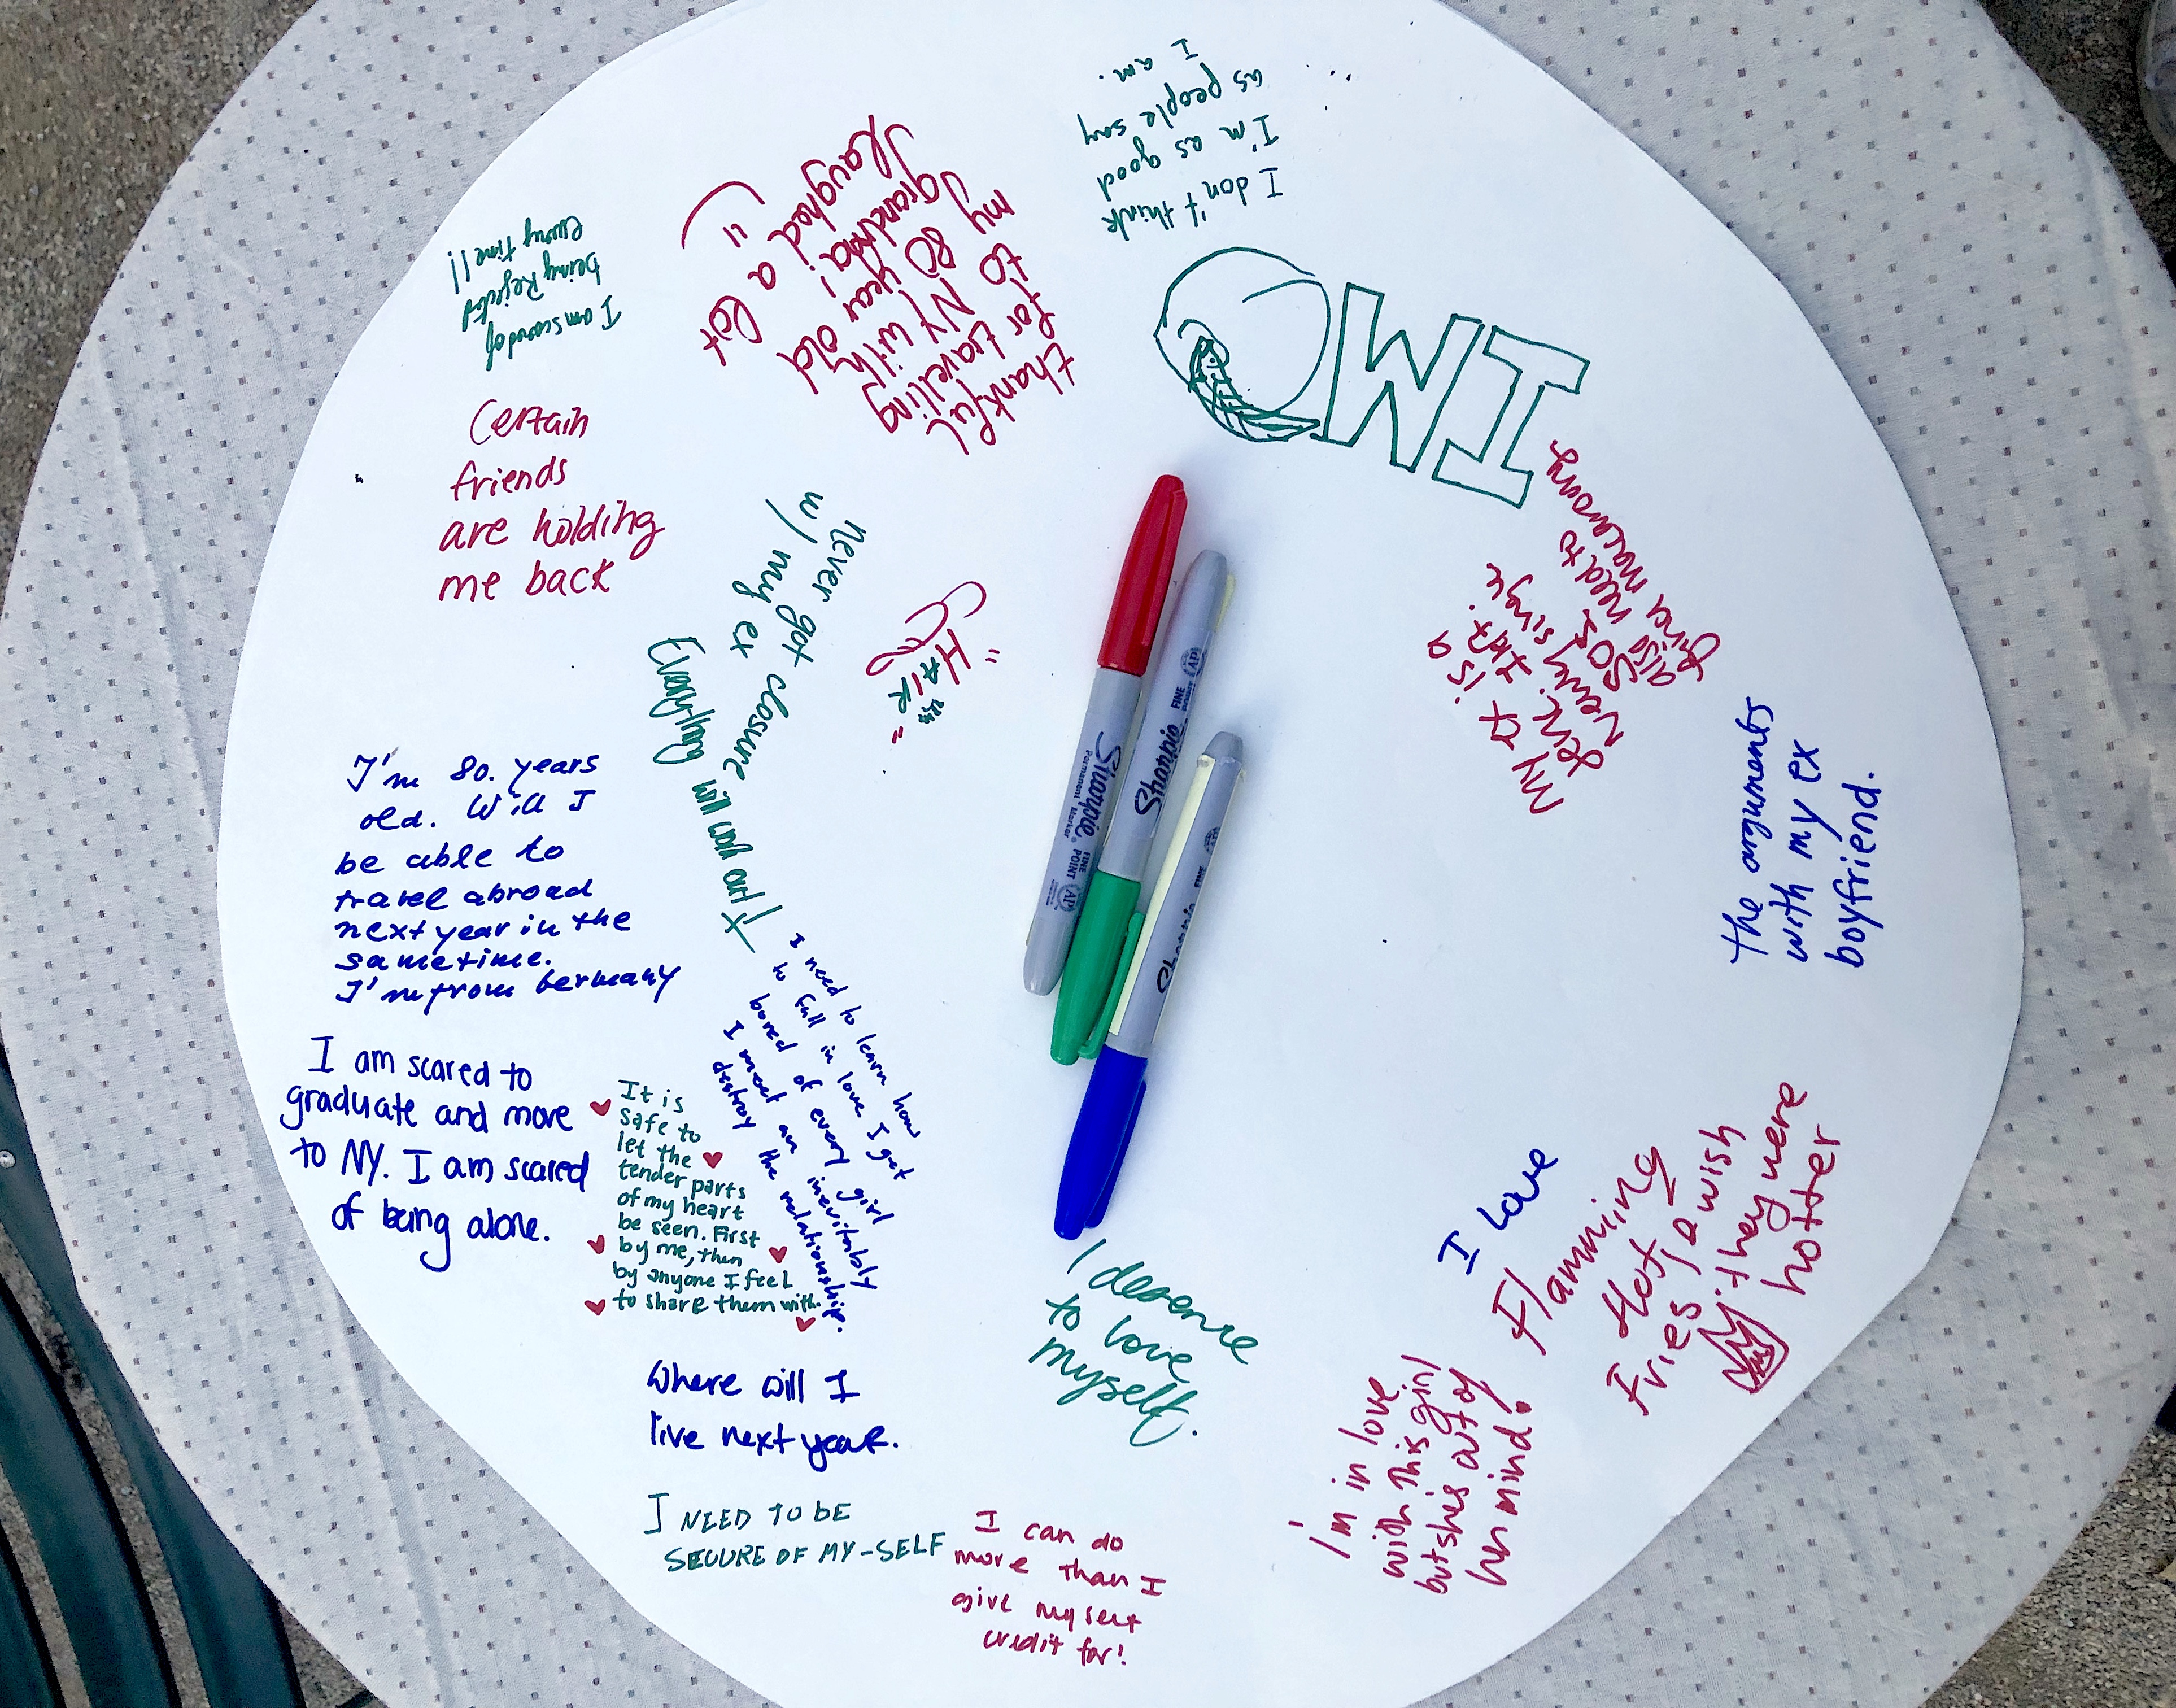 I don't think
I'm as good
as people say
I am.
IMO
thankful
for travelling
to NY with
my 80 year old
grandma!
Laughed a lot
I am scared of
being Rejected
every time!!
Certain
friends
are holding
me back
never got closure
w/ my ex
Everything will work out!
"HAIR"
My ex is a
very single.
SOS
also need to
find
The arguments
with my ex
boyfriend.
I'm 80. years
old. Will I
be able to
travel abroad
next year in the
sametime.
I'm from Germany
I am scared to
graduate and move
to NY. I am scared
of being alone.
It is
safe to
let the
tender parts
of my heart
be seen. First
by me, then
by anyone I feel
to share them with.
I need to learn how
to fall in love I get
bored of every girl
I meet an inevitably
destroy the relationship.
Where will I
live next year.
I NEED TO BE
SECURE OF MY-SELF
I can do
more than I
give myself
credit for!
I deserve
to love
myself.
I'm in love
with this girl
but shes out of
her mind.
I love
Flamming
Hot
Fries, I wish
they were
hotter
Sharpie
Permanent Marker
FINE
POINT
AP
Sharpie
FINE
POINT
AP
Sharpie
FINE